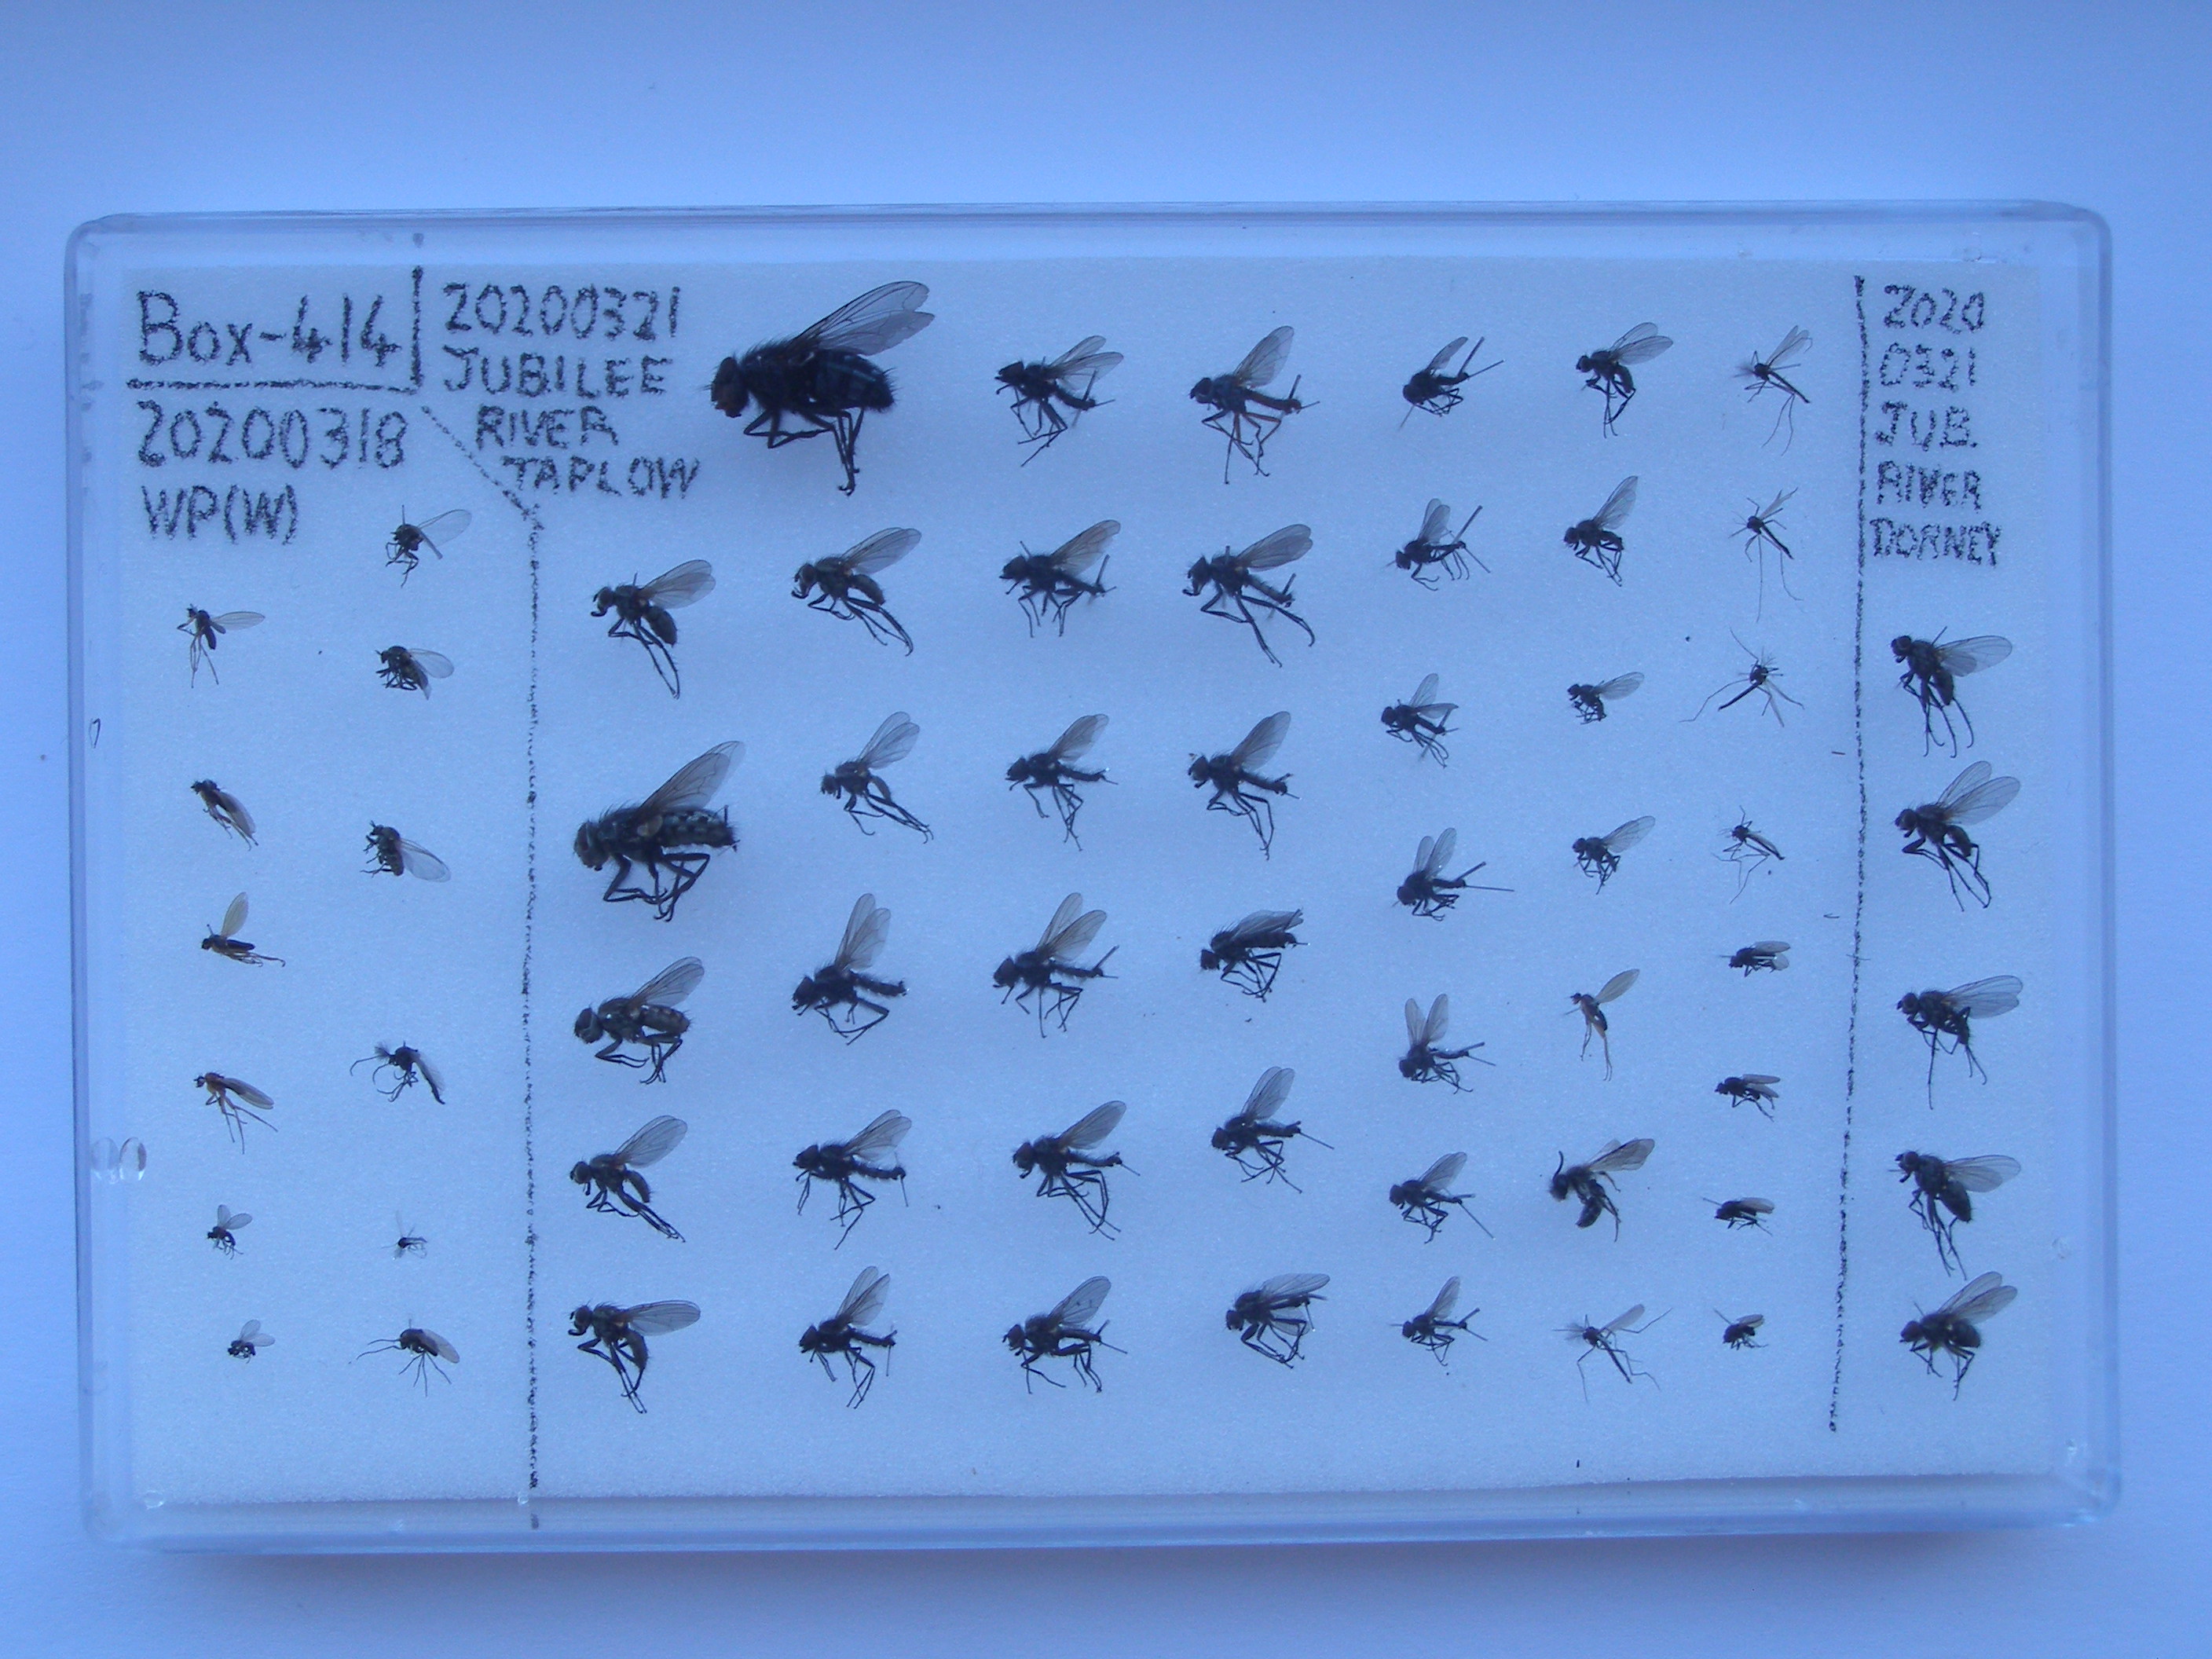 Box-414
20200318
WP(W)
20200321
JUBILEE
RIVER
TAPLOW
2020
0321
JUB.
RIVER
DORNEY